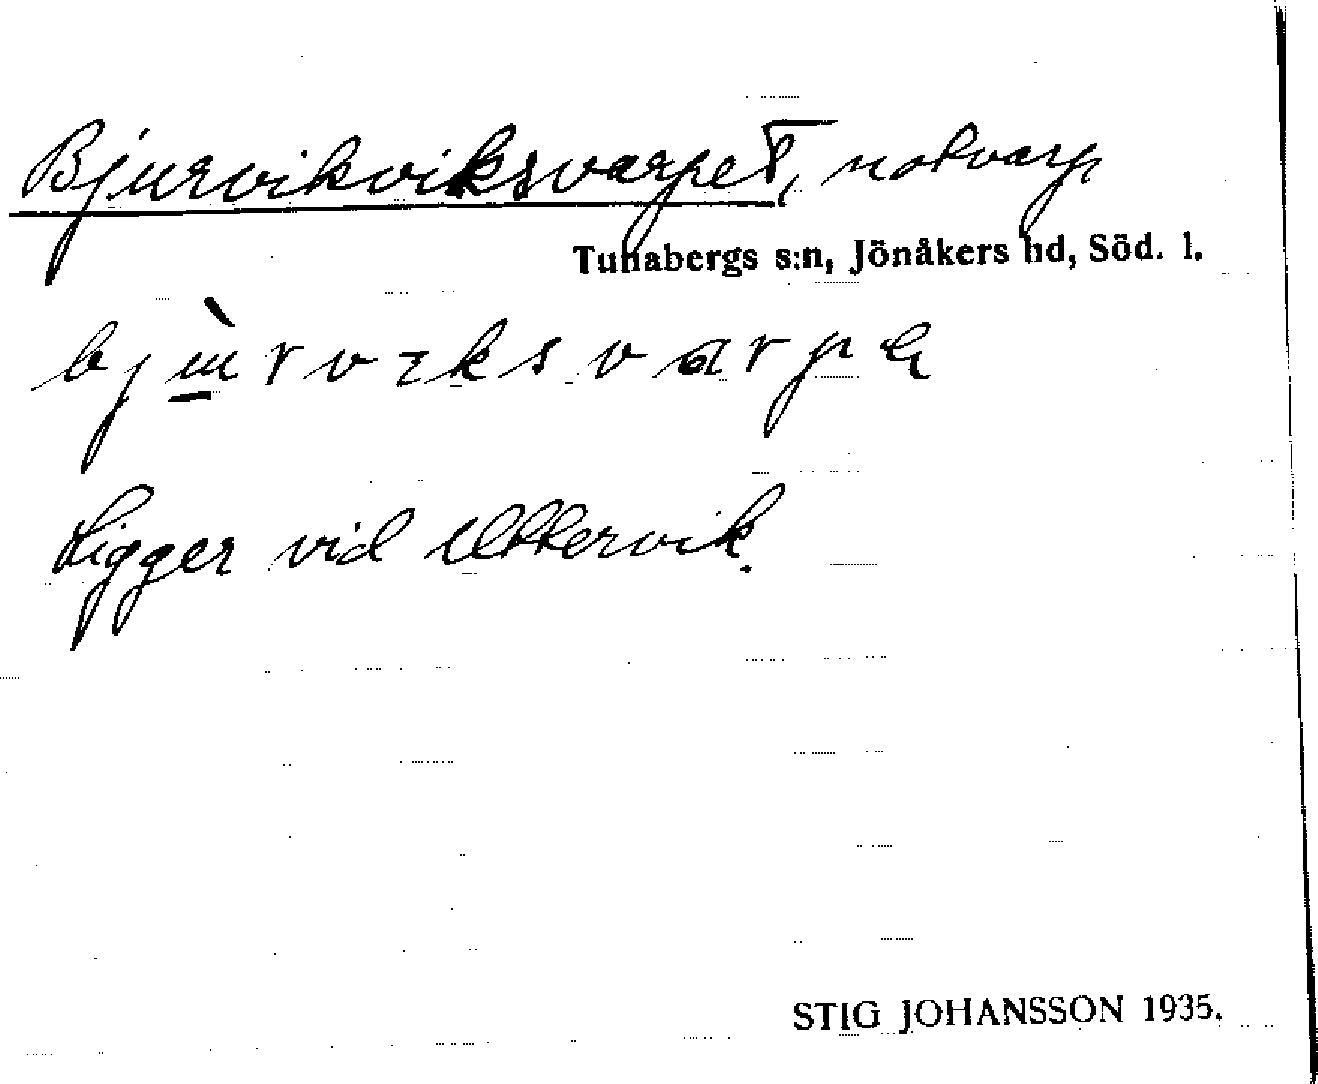 Bjurvikviksvarpet, notvarp
Tunabergs s:n, Jönåkers hd, Söd. l.
Ligger vid Uttervik.
STIG JOHANSSON 1935.